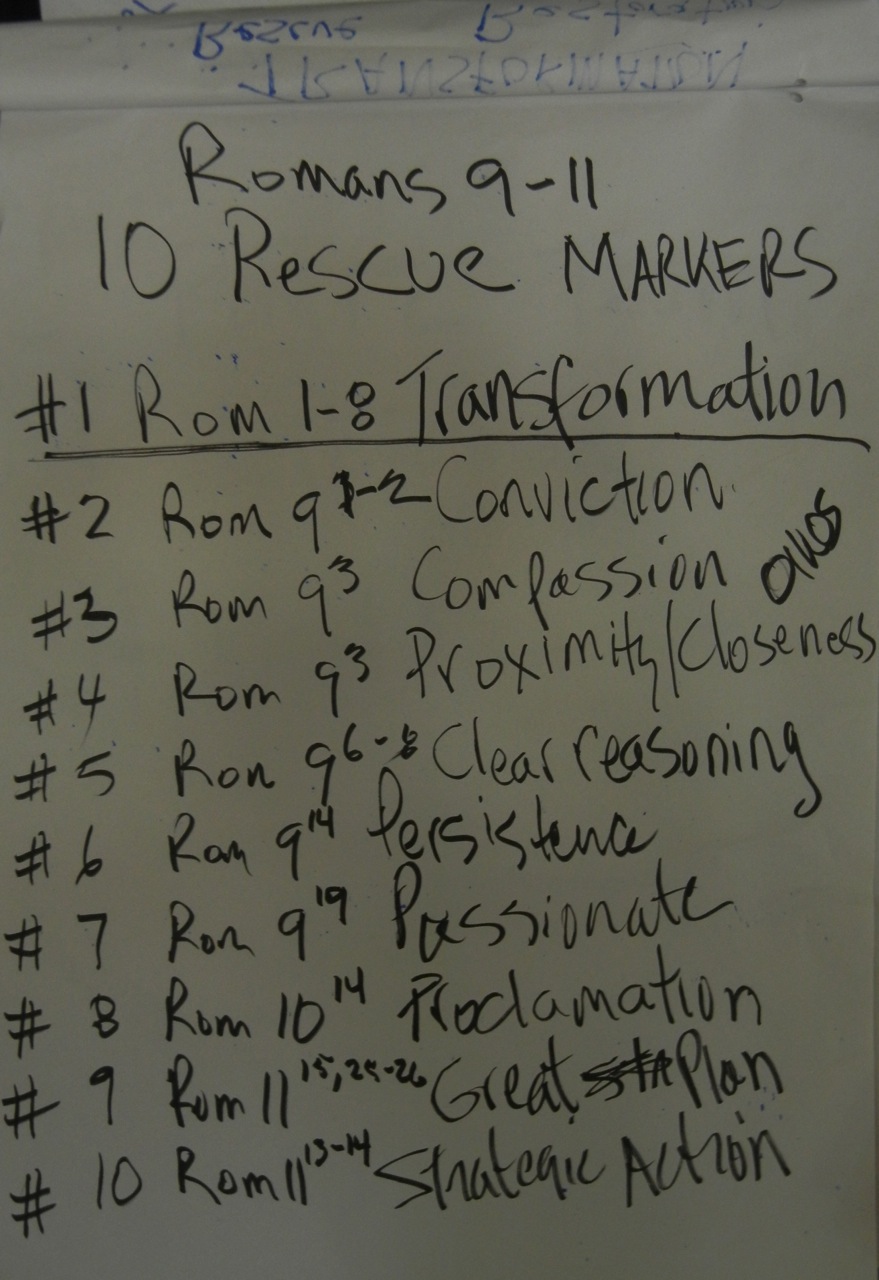 Rescue
TRANSFORMATION
Romans 9-11
10 Rescue MARKERS
#1 Rom 1-8 Transformation
#2 Rom 9 1-2 Conviction
#3 Rom 9 3 Compassion oikos
#4 Rom 9 3 Proximity/Closeness
#5 Rom 9 6-8 Clear reasoning
#6 Rom 9 14 Persistence
#7 Rom 9 19 Passionate
#8 Rom 10 14 Proclamation
#9 Rom 11 15, 25-26 Great Plan
#10 Rom 11 13-14 Strategic Action